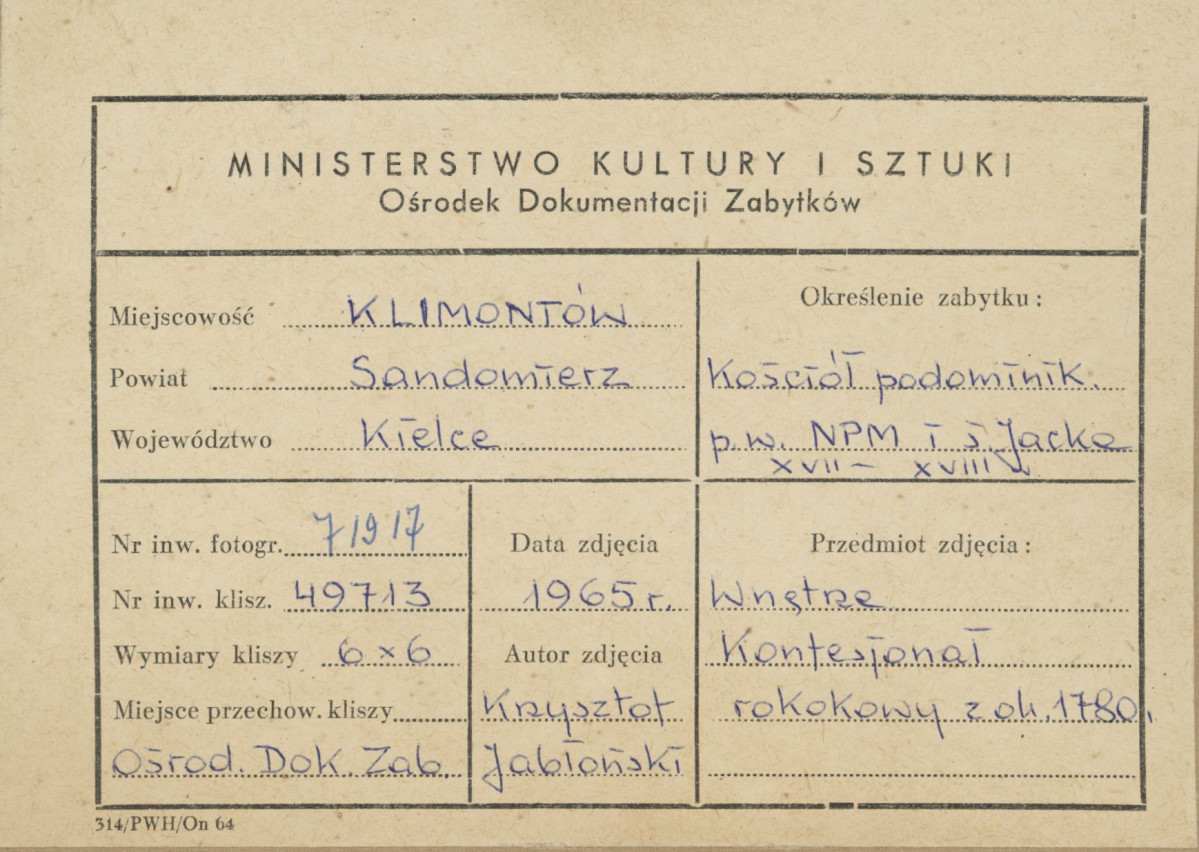 MINISTERSTWO KULTURY I SZTUKI
Ośrodek Dokumentacji Zabytków
Miejscowość KLIMONTÓW
Powiat Sandomierz
Województwo Kielce
Określenie zabytku:
Kościół podominik.
p.w. NPM i ś. Jacka
XVII – XVIII w
Nr inw. fotogr. 71917
Nr inw. klisz. 49713
Wymiary kliszy 6×6
Miejsce przechow. kliszy
Ośrod. Dok. Zab.
Data zdjęcia
1965 r.
Autor zdjęcia
Krzysztof
Jabłoński
Przedmiot zdjęcia:
Wnętrze
Konfesjonał
rokokowy z ok. 1780.
314/PWH/On 64